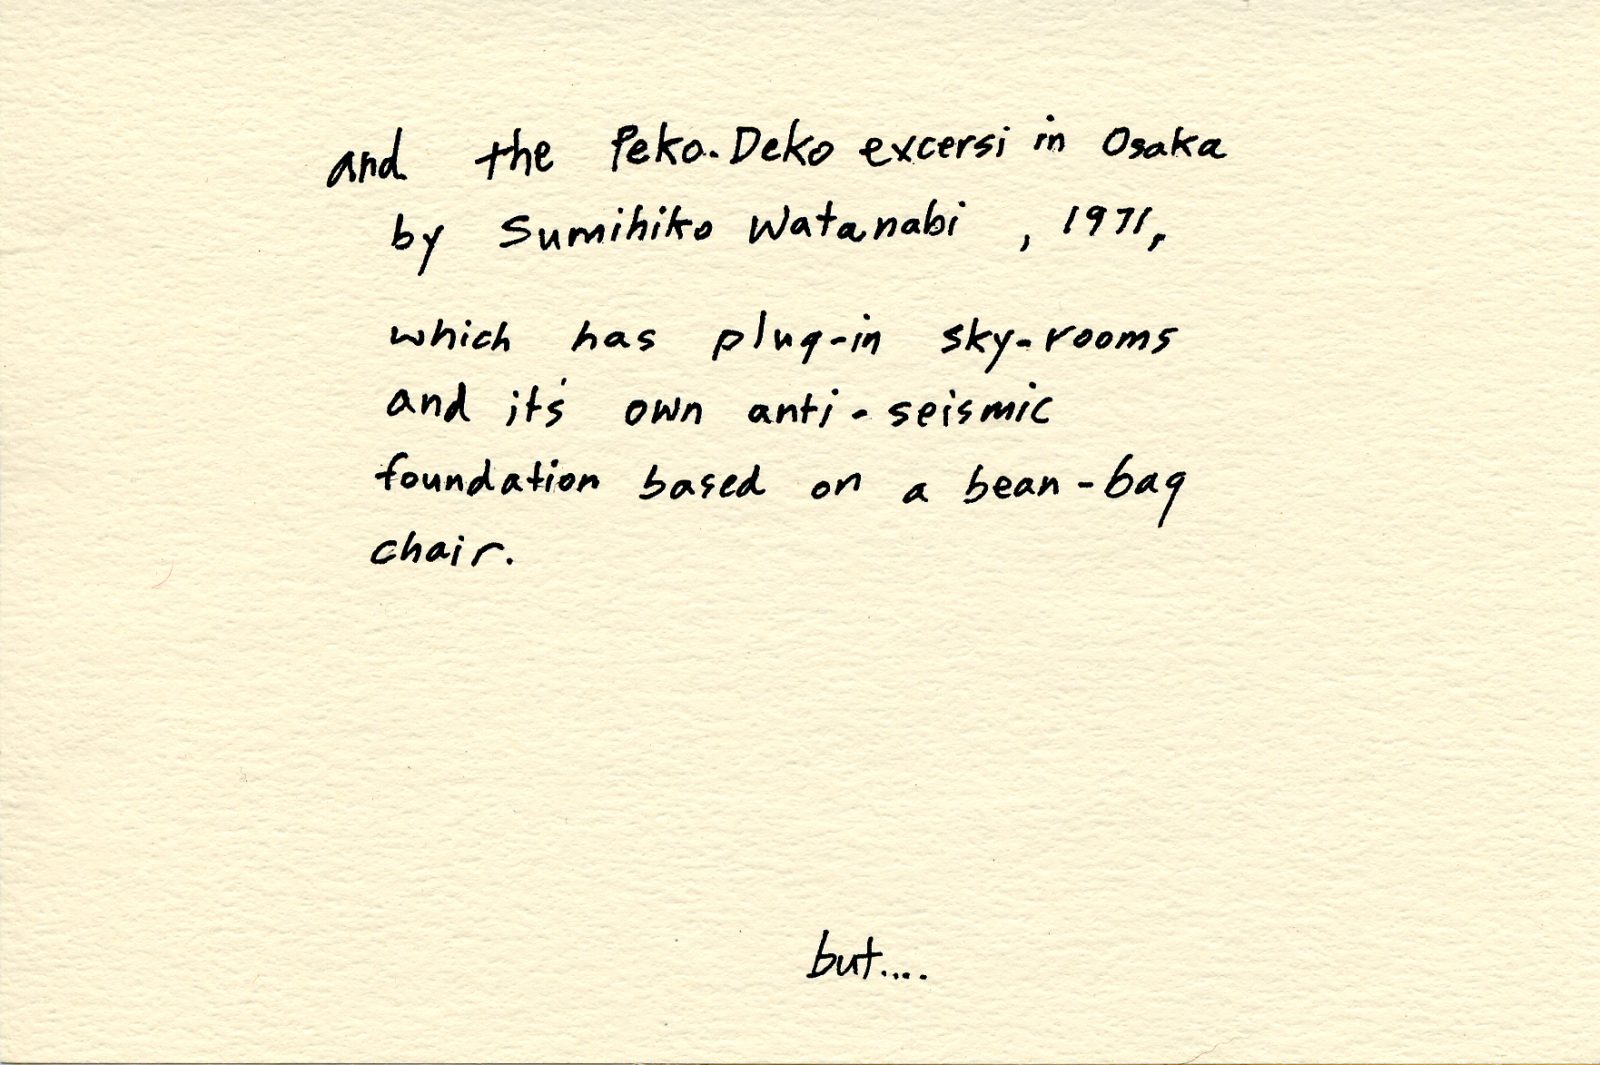 and the Peko-Deko excersi in Osaka
by Sumihiko Watanabi, 1971,
which has plug-in sky-rooms
and it's own anti-seismic
foundation based on a bean-bag
chair.
but....